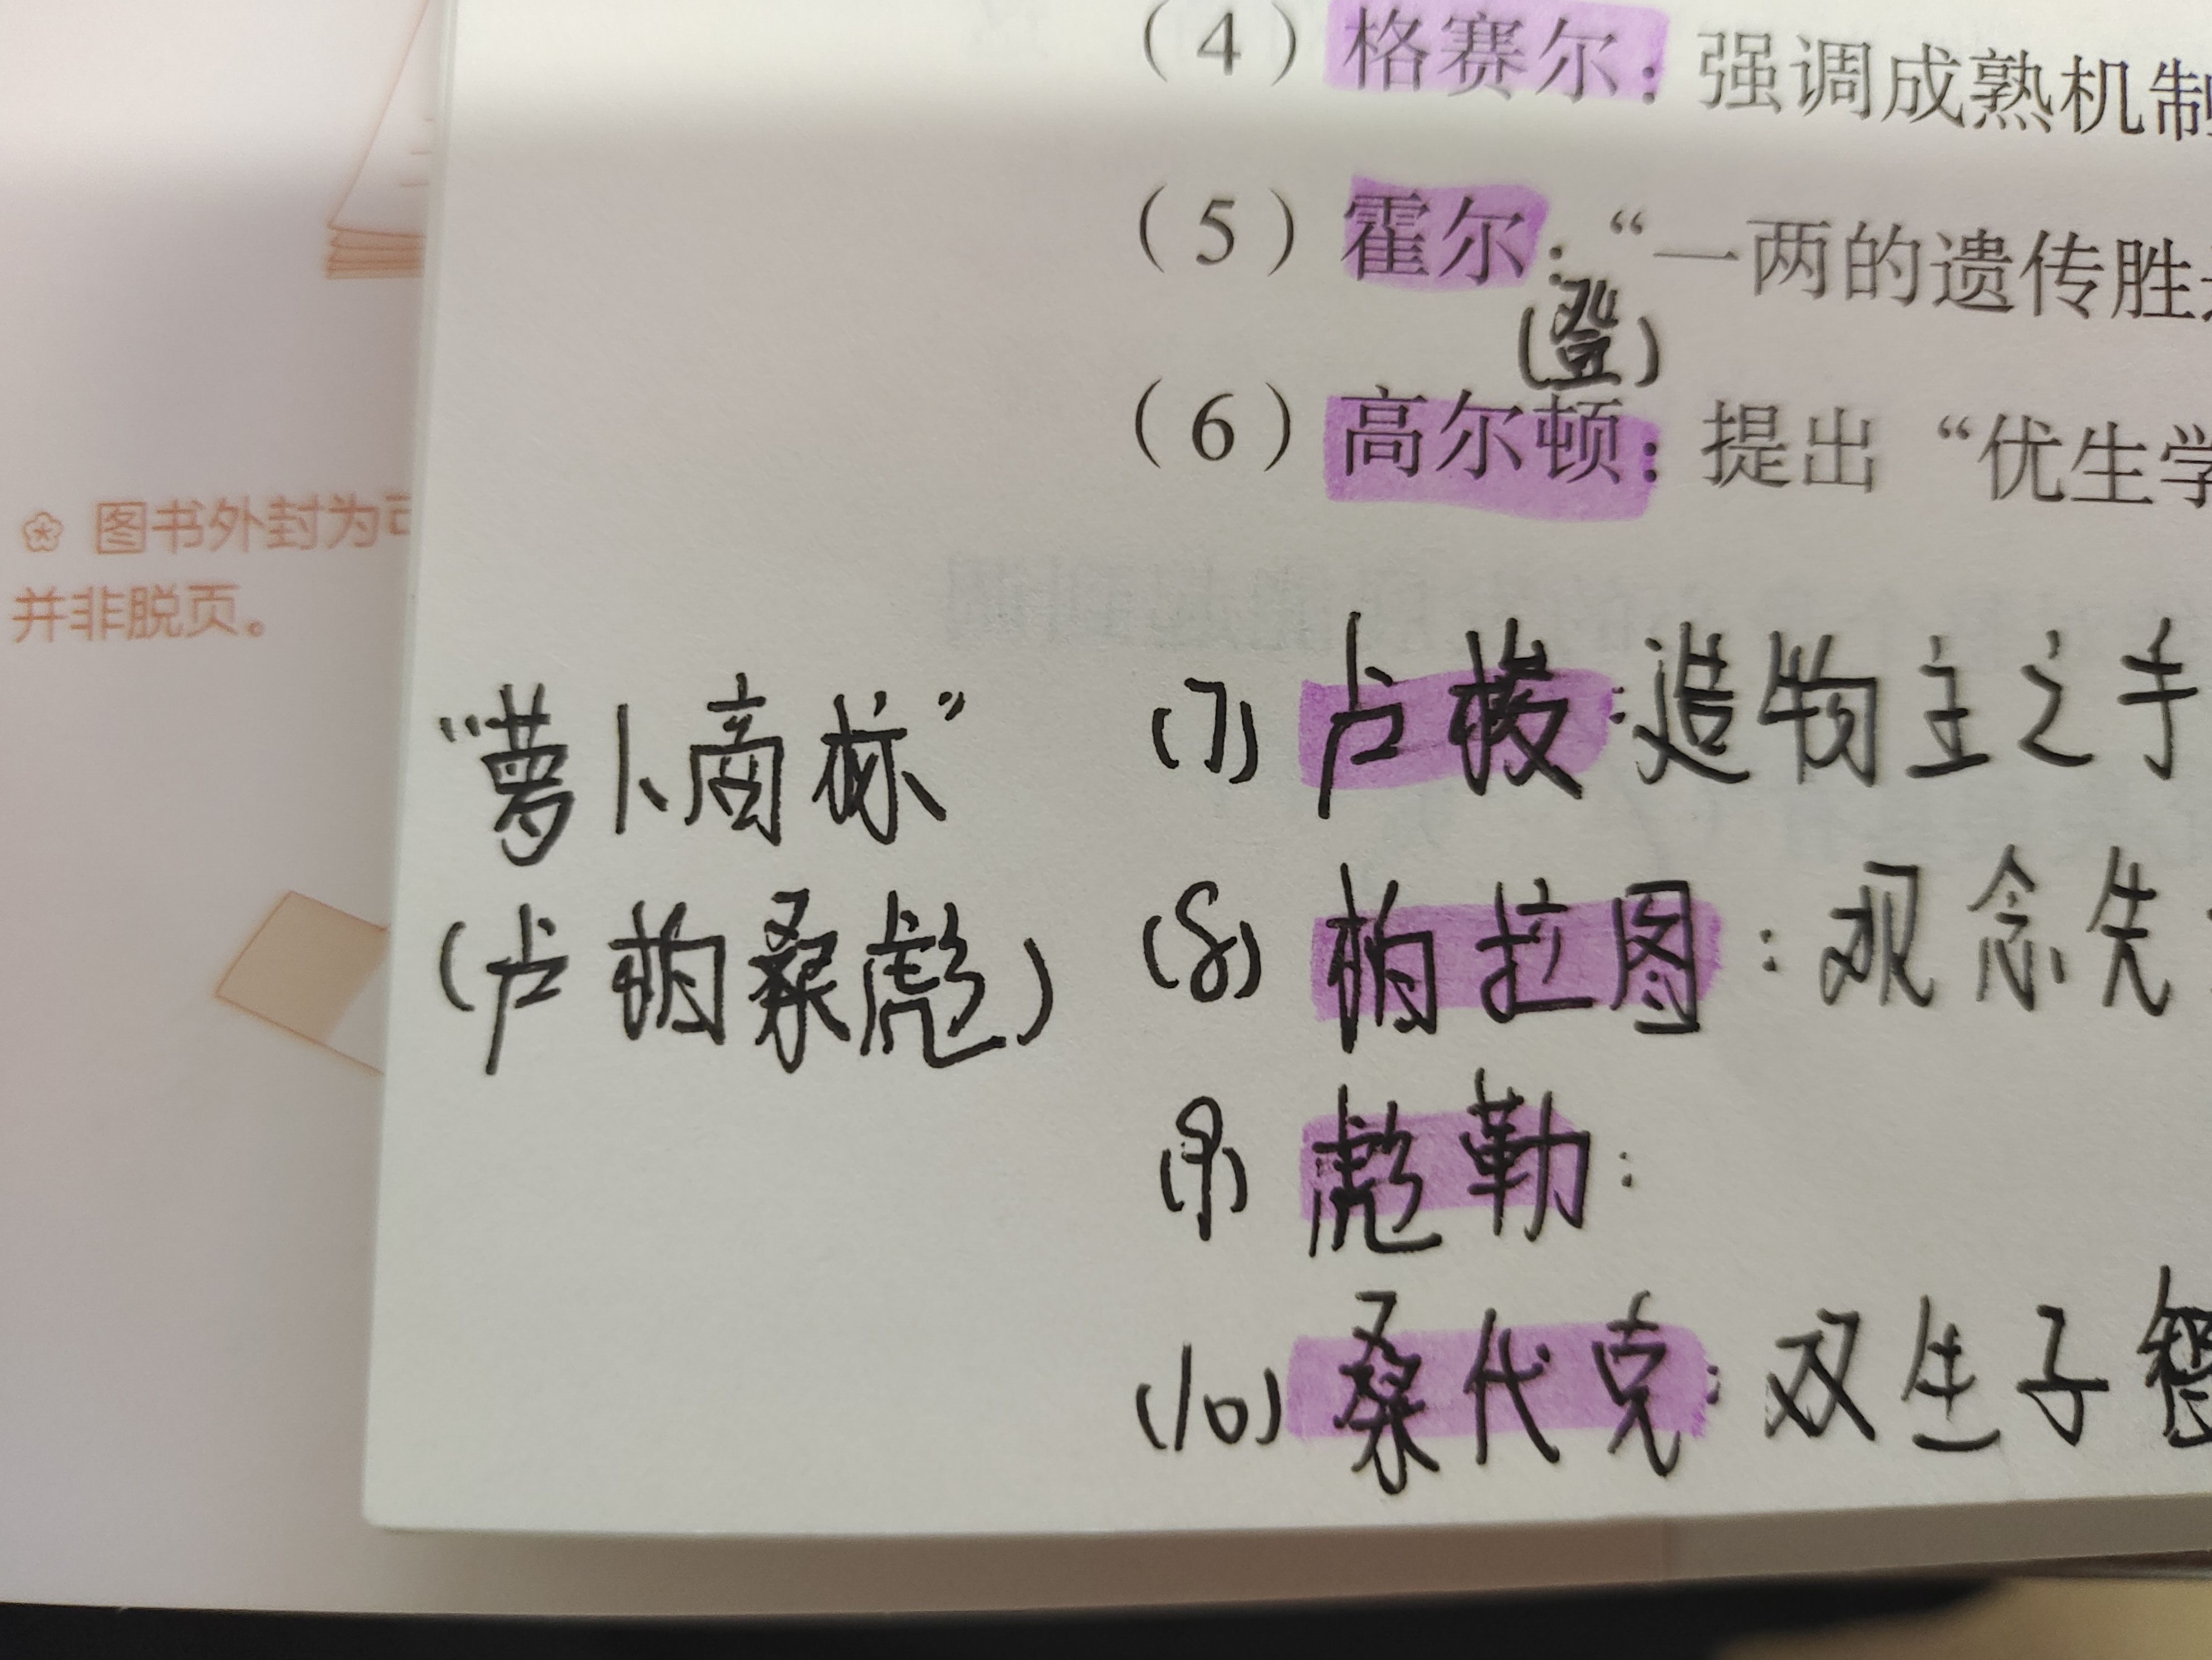 （4）格赛尔：强调成熟机制
（5）霍尔：“一两的遗传胜
（登）
（6）高尔顿：提出“优生学
✿ 图书外封为可
并非脱页。
“萝卜商标”
（卢柏桑彪）
（7）卢梭：造物主之手
（8）柏拉图：观念先
（9）彪勒：
（10）桑代克：双生子